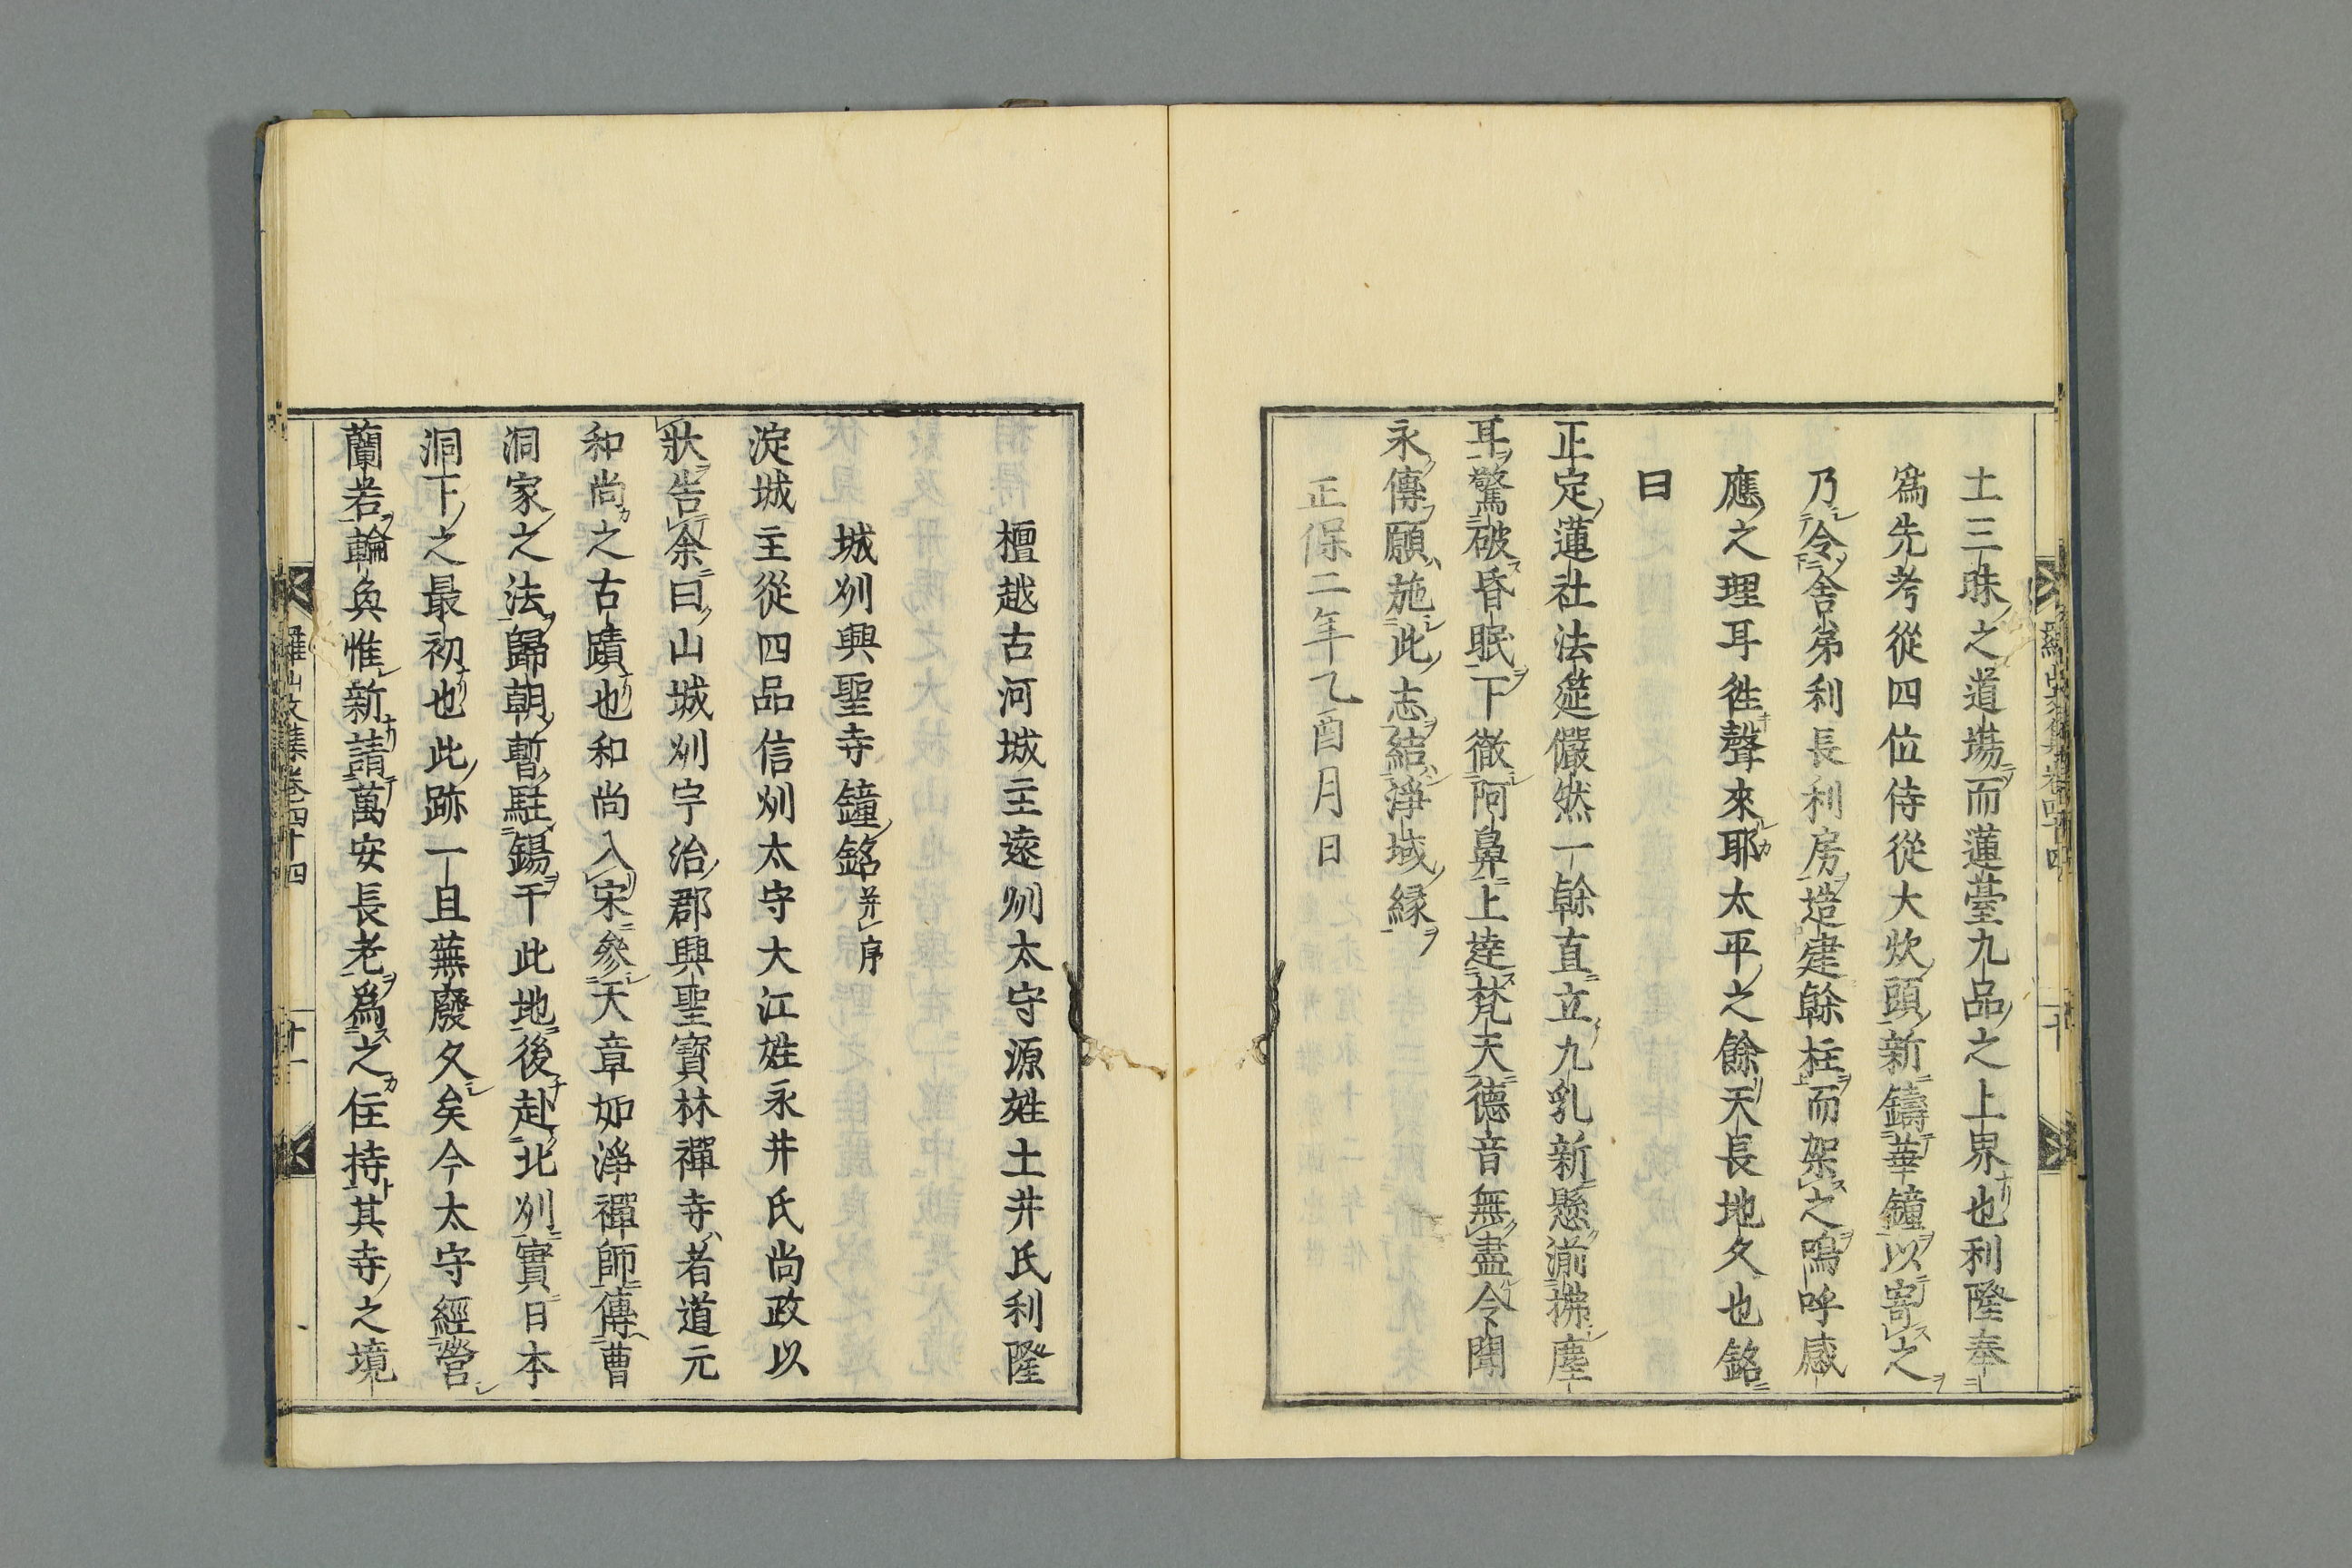 土三珠之道場而蓮臺九品之上界也利隆奉
爲先考從四位侍從大炊頭新鑄華鐘以寄之
乃令舍弟利長利房造建幹柱而架之嗚呼感
應之理耳徃聲來耶太平之餘天長地久也銘
曰
正定蓮社法筵儼然一幹直立九乳新懸湔拂塵
耳驚破昏眠下徹阿鼻上達梵天德音無盡令聞
永傳願施此志結淨域緣
正保二年乙酉月日
檀越古河城主遠刕太守源姓土井氏利隆
城刕興聖寺鐘銘并序
淀城主從四品信刕太守大江姓永井氏尚政以
狀告余曰山城刕宇治郡興聖寶林禪寺者道元
和尚之古蹟也和尚入宋參天章如淨禪師傳曹
洞家之法歸朝暫駐錫干此地後赴北刕實日本
洞下之最初也此跡一旦蕪廢久矣今太守經營
蘭若輪奐惟新請萬安長老爲之住持其寺之境
羅山文集卷四十四
十一